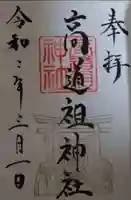 奉拝
高道祖神社
令和二年三月一日